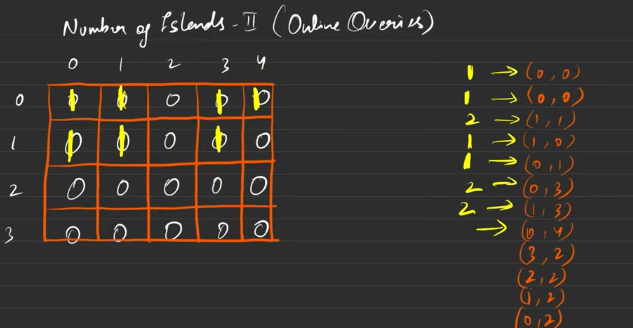 Number of Islands - II (Online Queries)
0 1 2 3 4
0 0 0 0 0 0
1 0 0 0 0 0
2 0 0 0 0 0
3 0 0 0 0 0
1 → (0, 0)
1 → (0, 0)
2 → (1, 1)
1 → (1, 0)
1 → (0, 1)
2 → (0, 3)
2 → (1, 3)
→ (0, 4)
(3, 2)
(2, 2)
(1, 2)
(0, 2)